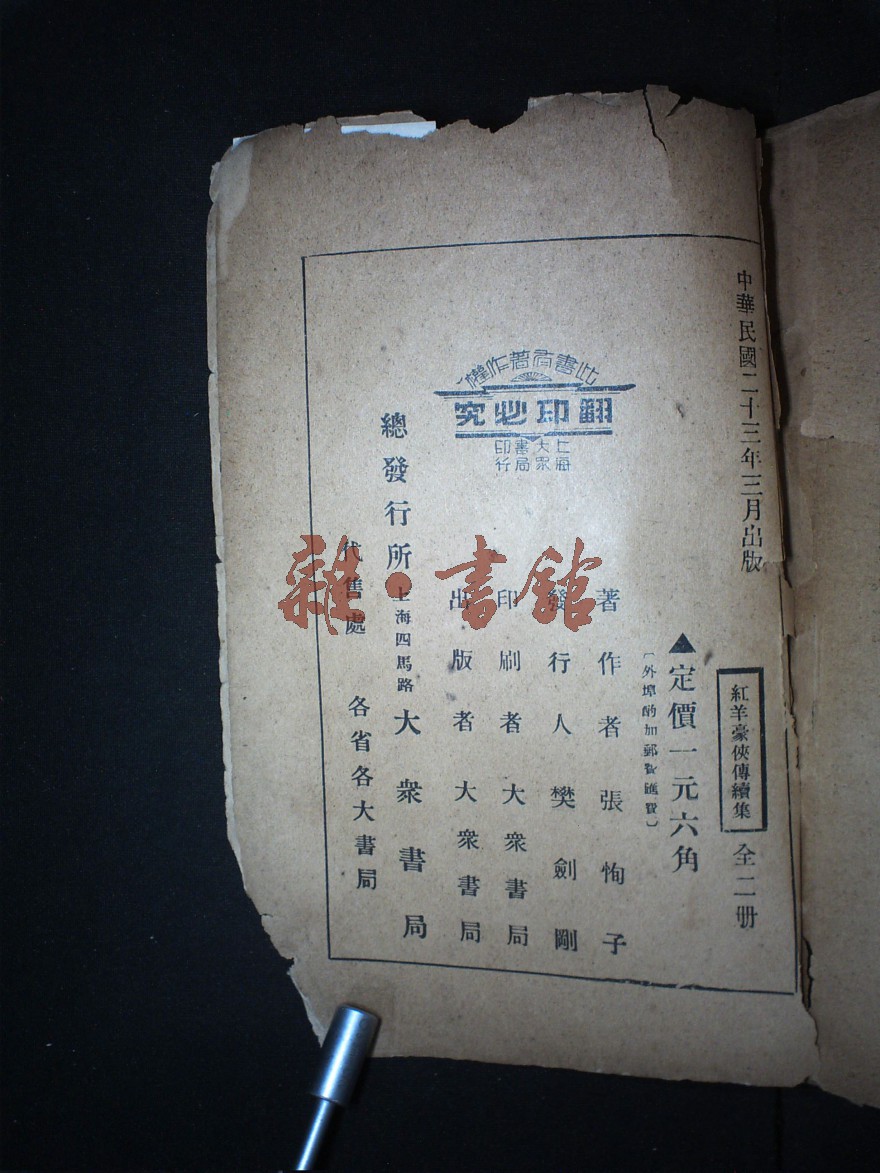 中華民國二十三年三月出版
紅羊豪俠傳續集 全二册
▲定價一元六角
〔外埠酌加郵費匯費〕
著作者張恂子
發行人樊劍剛
印刷者大衆書局
出版者大衆書局
總發行所 上海四馬路 大衆書局
代售處 各省各大書局
此書有著作權
翻印必究
上海大衆書局印行
雜·書館